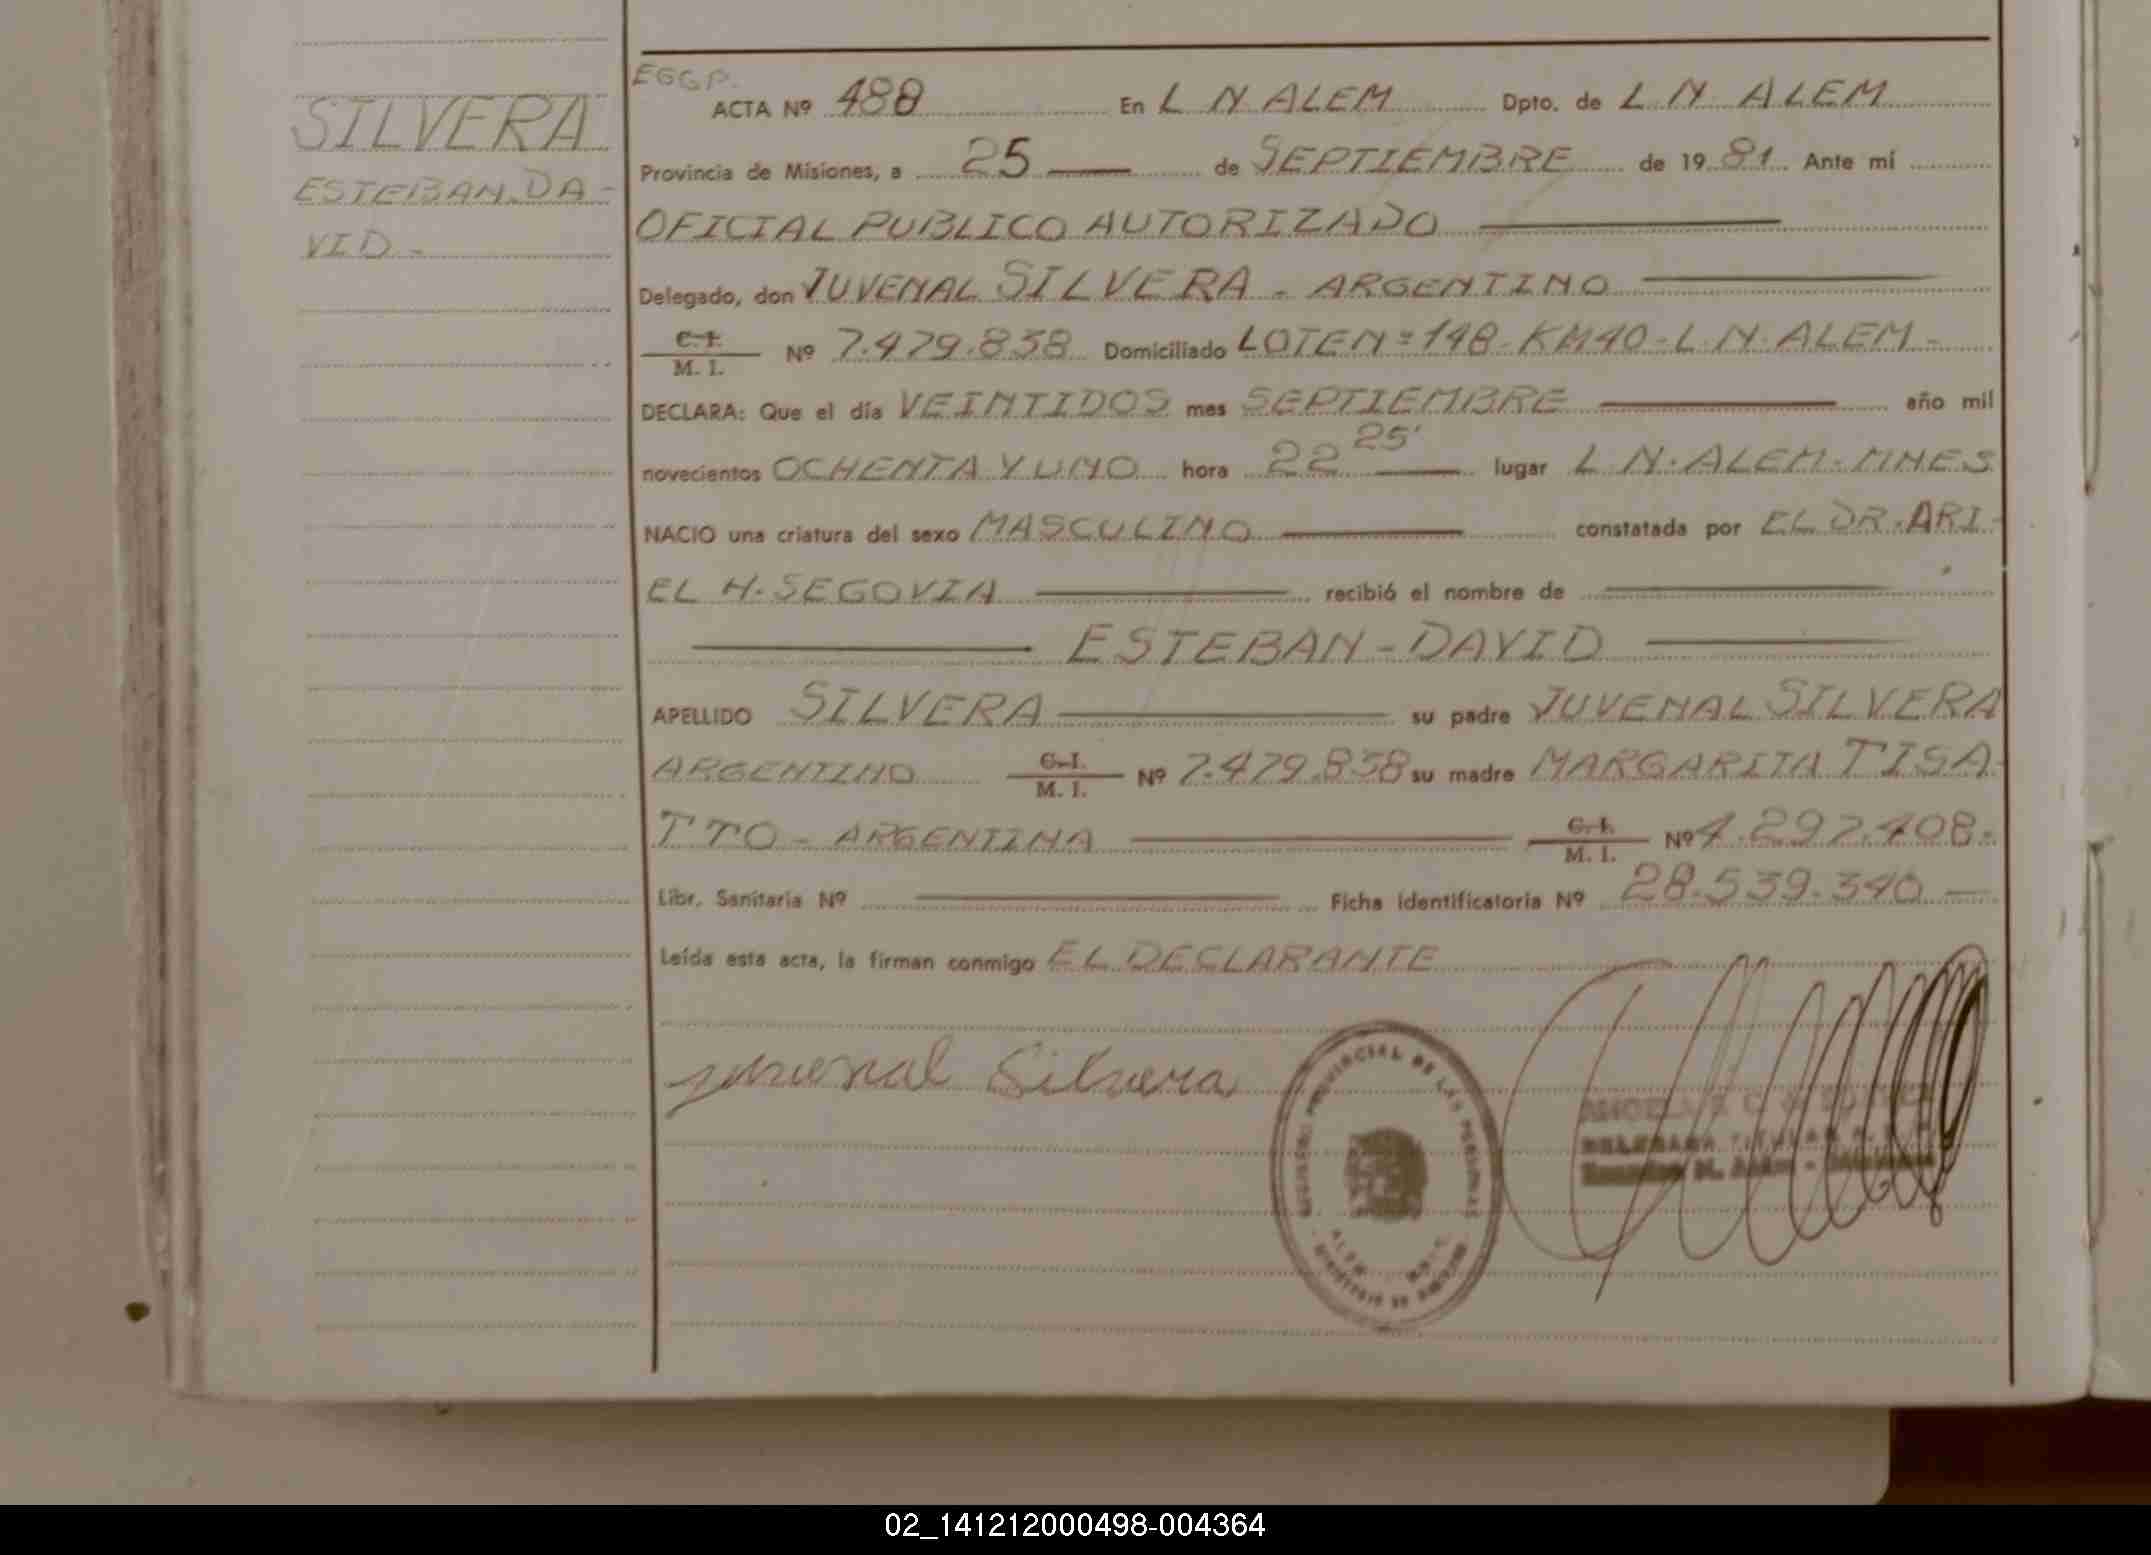 SILVERA
ESTEBAN DA-
VID-
EGGP.
ACTA Nº 488 En L N ALEM Dpto. de L. N. ALEM
Provincia de Misiones, a 25 de SEPTIEMBRE de 1981. Ante mí
OFICIAL PUBLICO AUTORIZADO
Delegado, don JUVENAL SILVERA - ARGENTINO
C. I.
M. I. Nº 7.479.838 Domiciliado LOTE Nº 148-KM40-L.N.ALEM-
DECLARA: Que el día VEINTIDOS mes SEPTIEMBRE año mil
novecientos OCHENTA Y UNO hora 22 25' lugar L N.ALEM.MNES
NACIO una criatura del sexo MASCULINO constatada por EL DR.ARI-
EL H. SEGOVIA recibió el nombre de
ESTEBAN-DAVID
APELLIDO SILVERA su padre JUVENAL SILVERA
ARGENTINO C. I. M. I. Nº 7.479.838 su madre MARGARITA TISA-
TTO - ARGENTINA C. I. M. I. Nº 4.297.408.-
Libr. Sanitaria Nº Ficha identificatoria Nº 28.539.340
Leída esta acta, la firman conmigo EL DECLARANTE
Juvenal Silvera
REGISTRO PROVINCIAL DE LAS PERSONAS
DELEGADA TITULAR
02_141212000498-004364